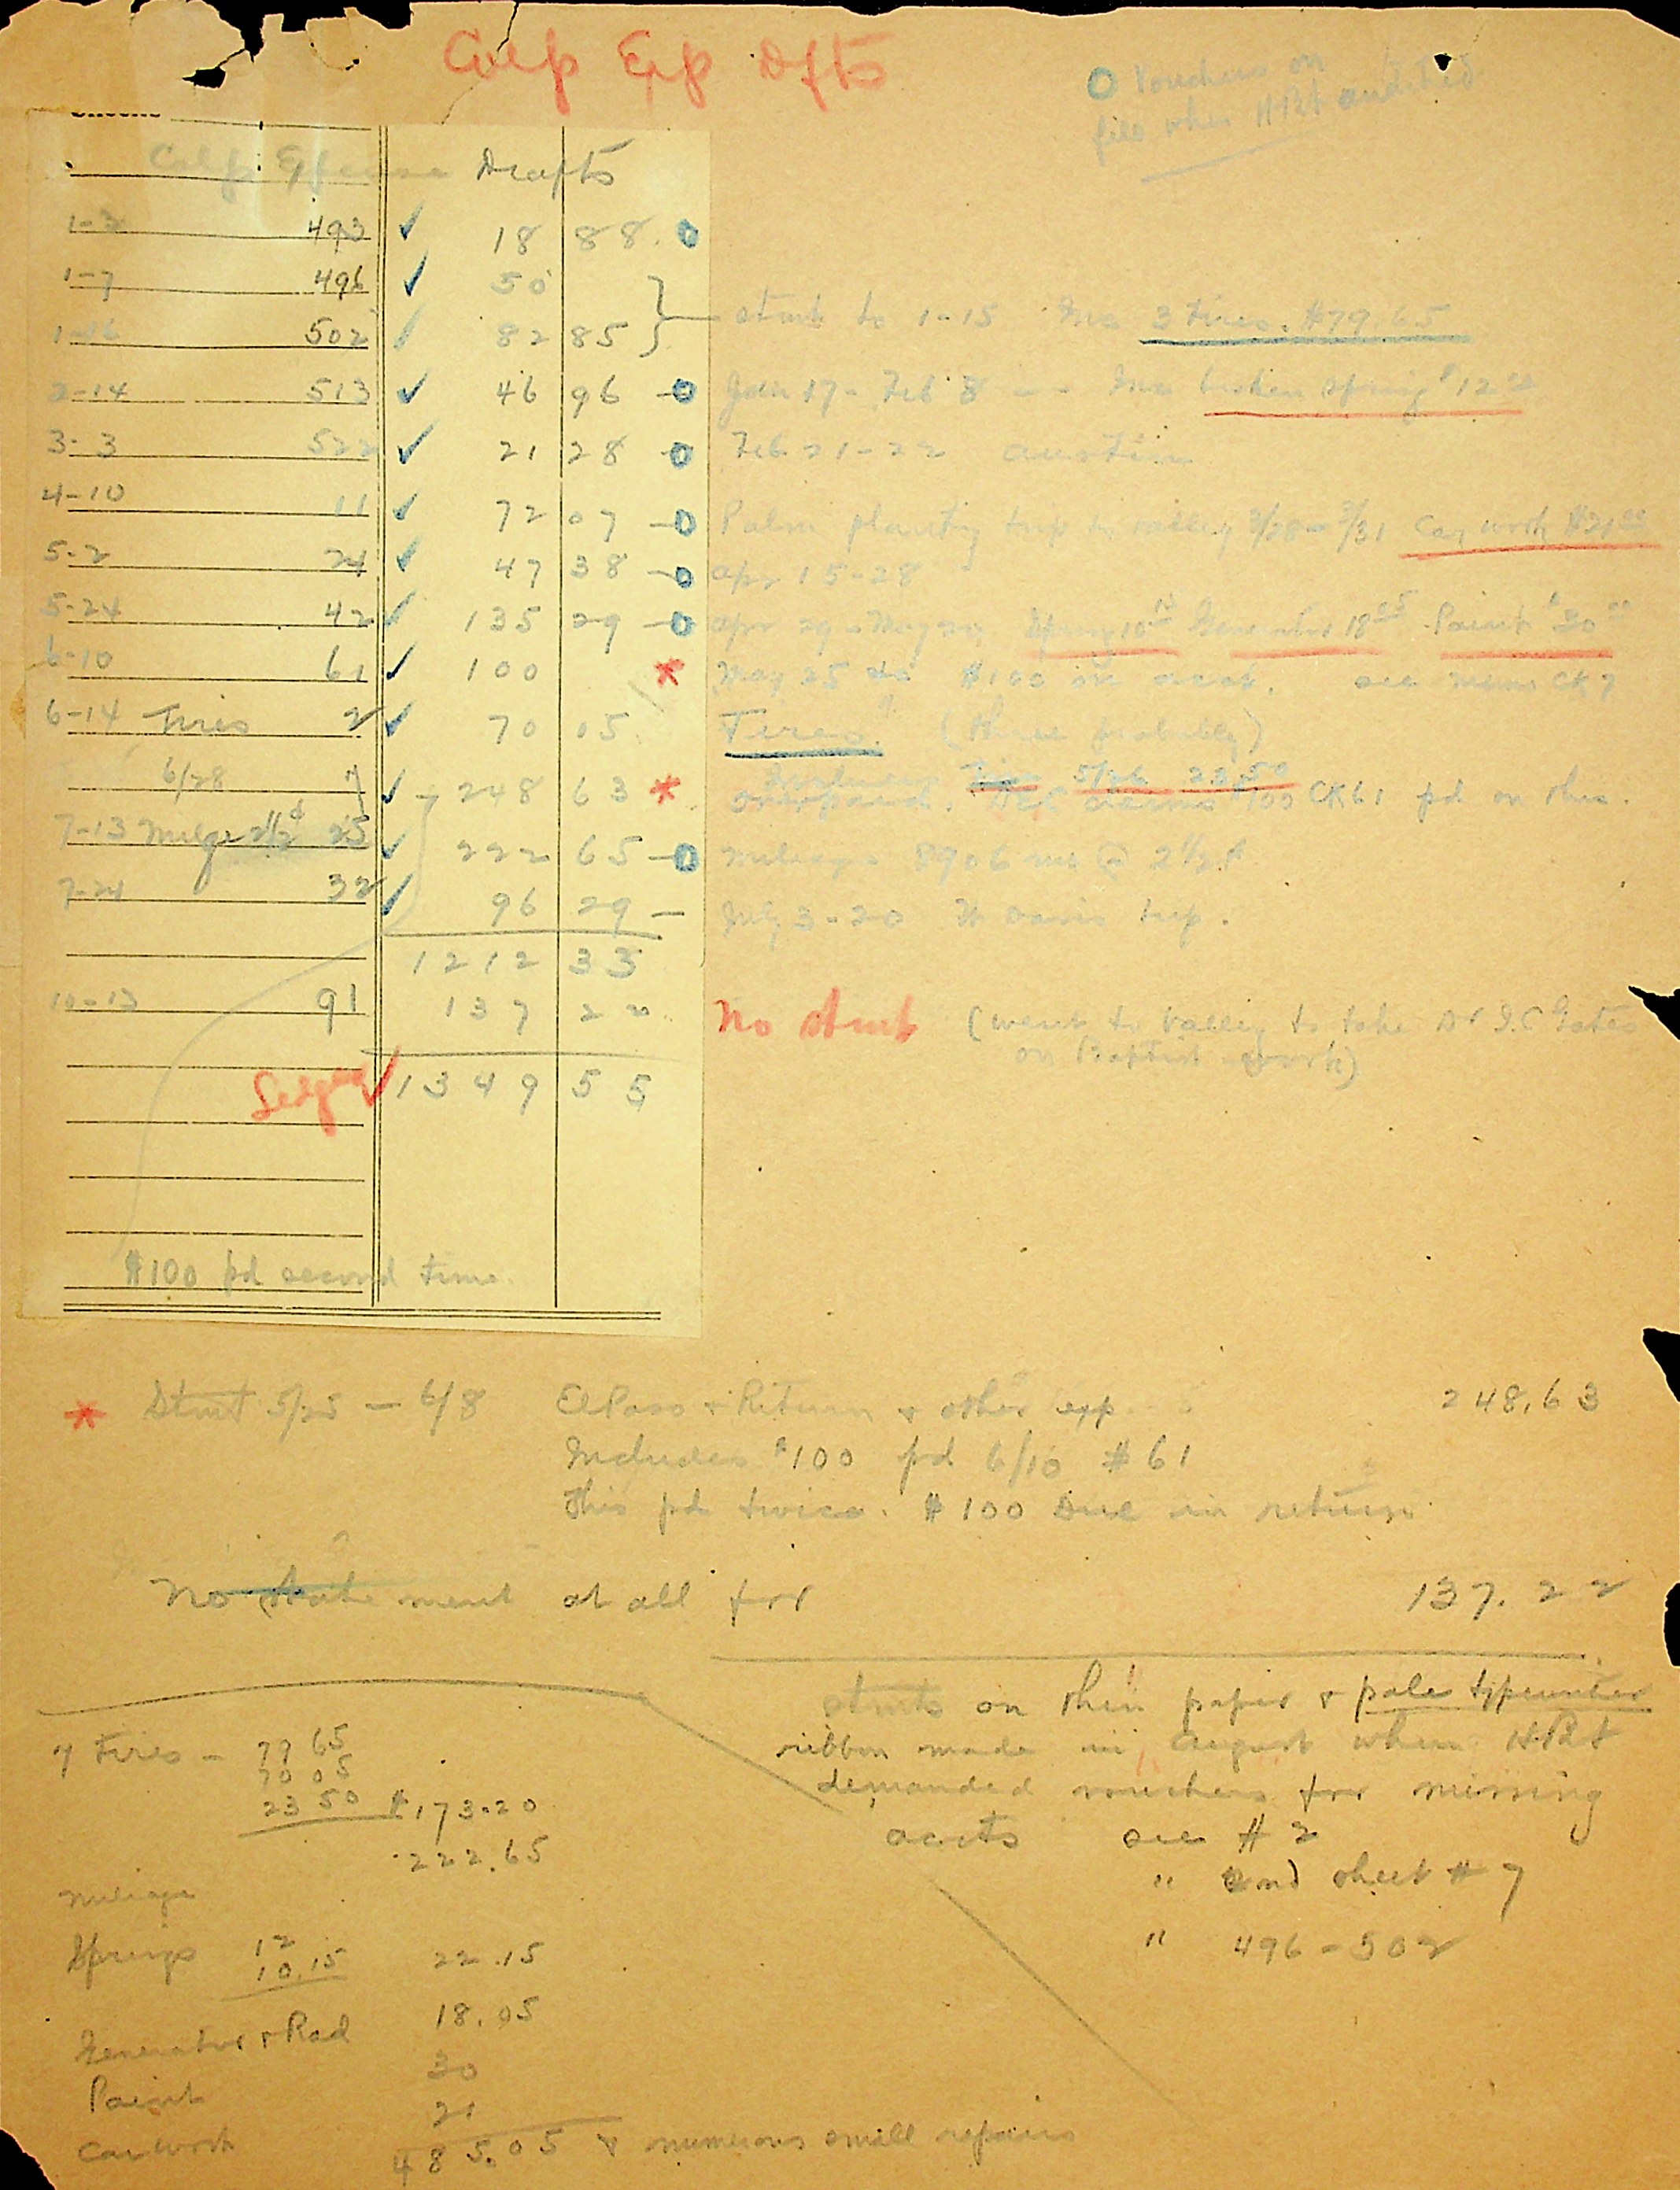 Colp Exp Dfts
O Vouchers on
file when HPA audited
Colp Expense Drafts
1-3 493 ✓ 18 88. O
1-7 496 ✓ 50
1-16 502 ✓ 82 85 } stmt to 1-15 Inc 3 tires. $79.65
2-14 513 ✓ 46 96 -O Jan 17 - Feb 8 -- Inc broken spring $12
3-3 522 ✓ 21 28 -O Feb 21-22 Austin
4-10 11 ✓ 72 07 -O Palm planting trip to valley 3/28 - 3/31 Car work $21
5-2 24 ✓ 47 38 -O Apr 15-28
5-24 42 ✓ 135 29 -O Apr 29 - May Spring 10 15 Generator 18 Paint $30
6-10 61 ✓ 100 * May 25 $100 on acct. see
6-14 Tires 2 ✓ 70 05 Tires. (three probably)
6/28 7 ✓ 248 63 * Includes Tire 5/26 23.50
overpaid. claims $100 CK 61 pd on this.
7-13 Milge 2½¢ 25 ✓ 222 65 -O Mileage 8906 mi @ 2½¢
7-24 32 ✓ 96 29 - July 3-20 Ft Davis trip.
1212 33
10-13 91 137 22 No stmt (went to valley to take Dr I.C Gates
on Baptist work)
Ledger ✓ 1349 55
$100 pd second time.
* Stmt 5/25 - 6/8 El Paso & Return & other exp 248.63
Includes $100 pd 6/10 #61
This pd twice. $100 Due in return
No statement at all for 137.22
stmts on thin paper & pale typewriter
ribbon made in August when
demanded vouchers for missing
accts see #2
" 2nd sheet #7
" 496-502
7 Tires - 79 65
70 05
23 50 $173.20
222.65
Mileage
Springs 12
10.15 22.15
Generator & Rad 18.05
Paint 30
Car work 21
485.05 & numerous small repairs